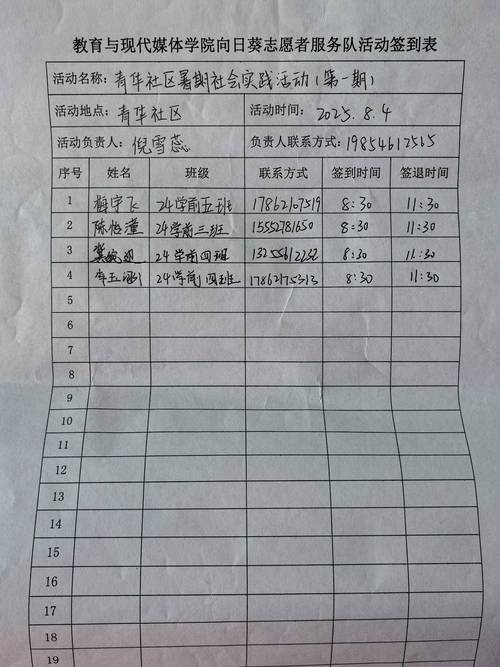 教育与现代媒体学院向日葵志愿者服务队活动签到表
活动名称: 青华社区暑期社会实践活动(第一期)
活动地点: 青华社区 活动时间: 2025.8.4
活动负责人: 倪雪蕊 负责人联系方式: 19854612565
序号 姓名 班级 联系方式 签到时间 签退时间
1 宇飞 24学前五班 17862107519 8:30 11:30
2 陈 24学前三班 15552781650 8:30 11:30
3 24学前四班 13255612232 8:30 11:30
4 李玉涵 24学前四班 17862175313 8:30 11:30
5
6
7
8
9
10
11
12
13
14
15
16
17
18
19